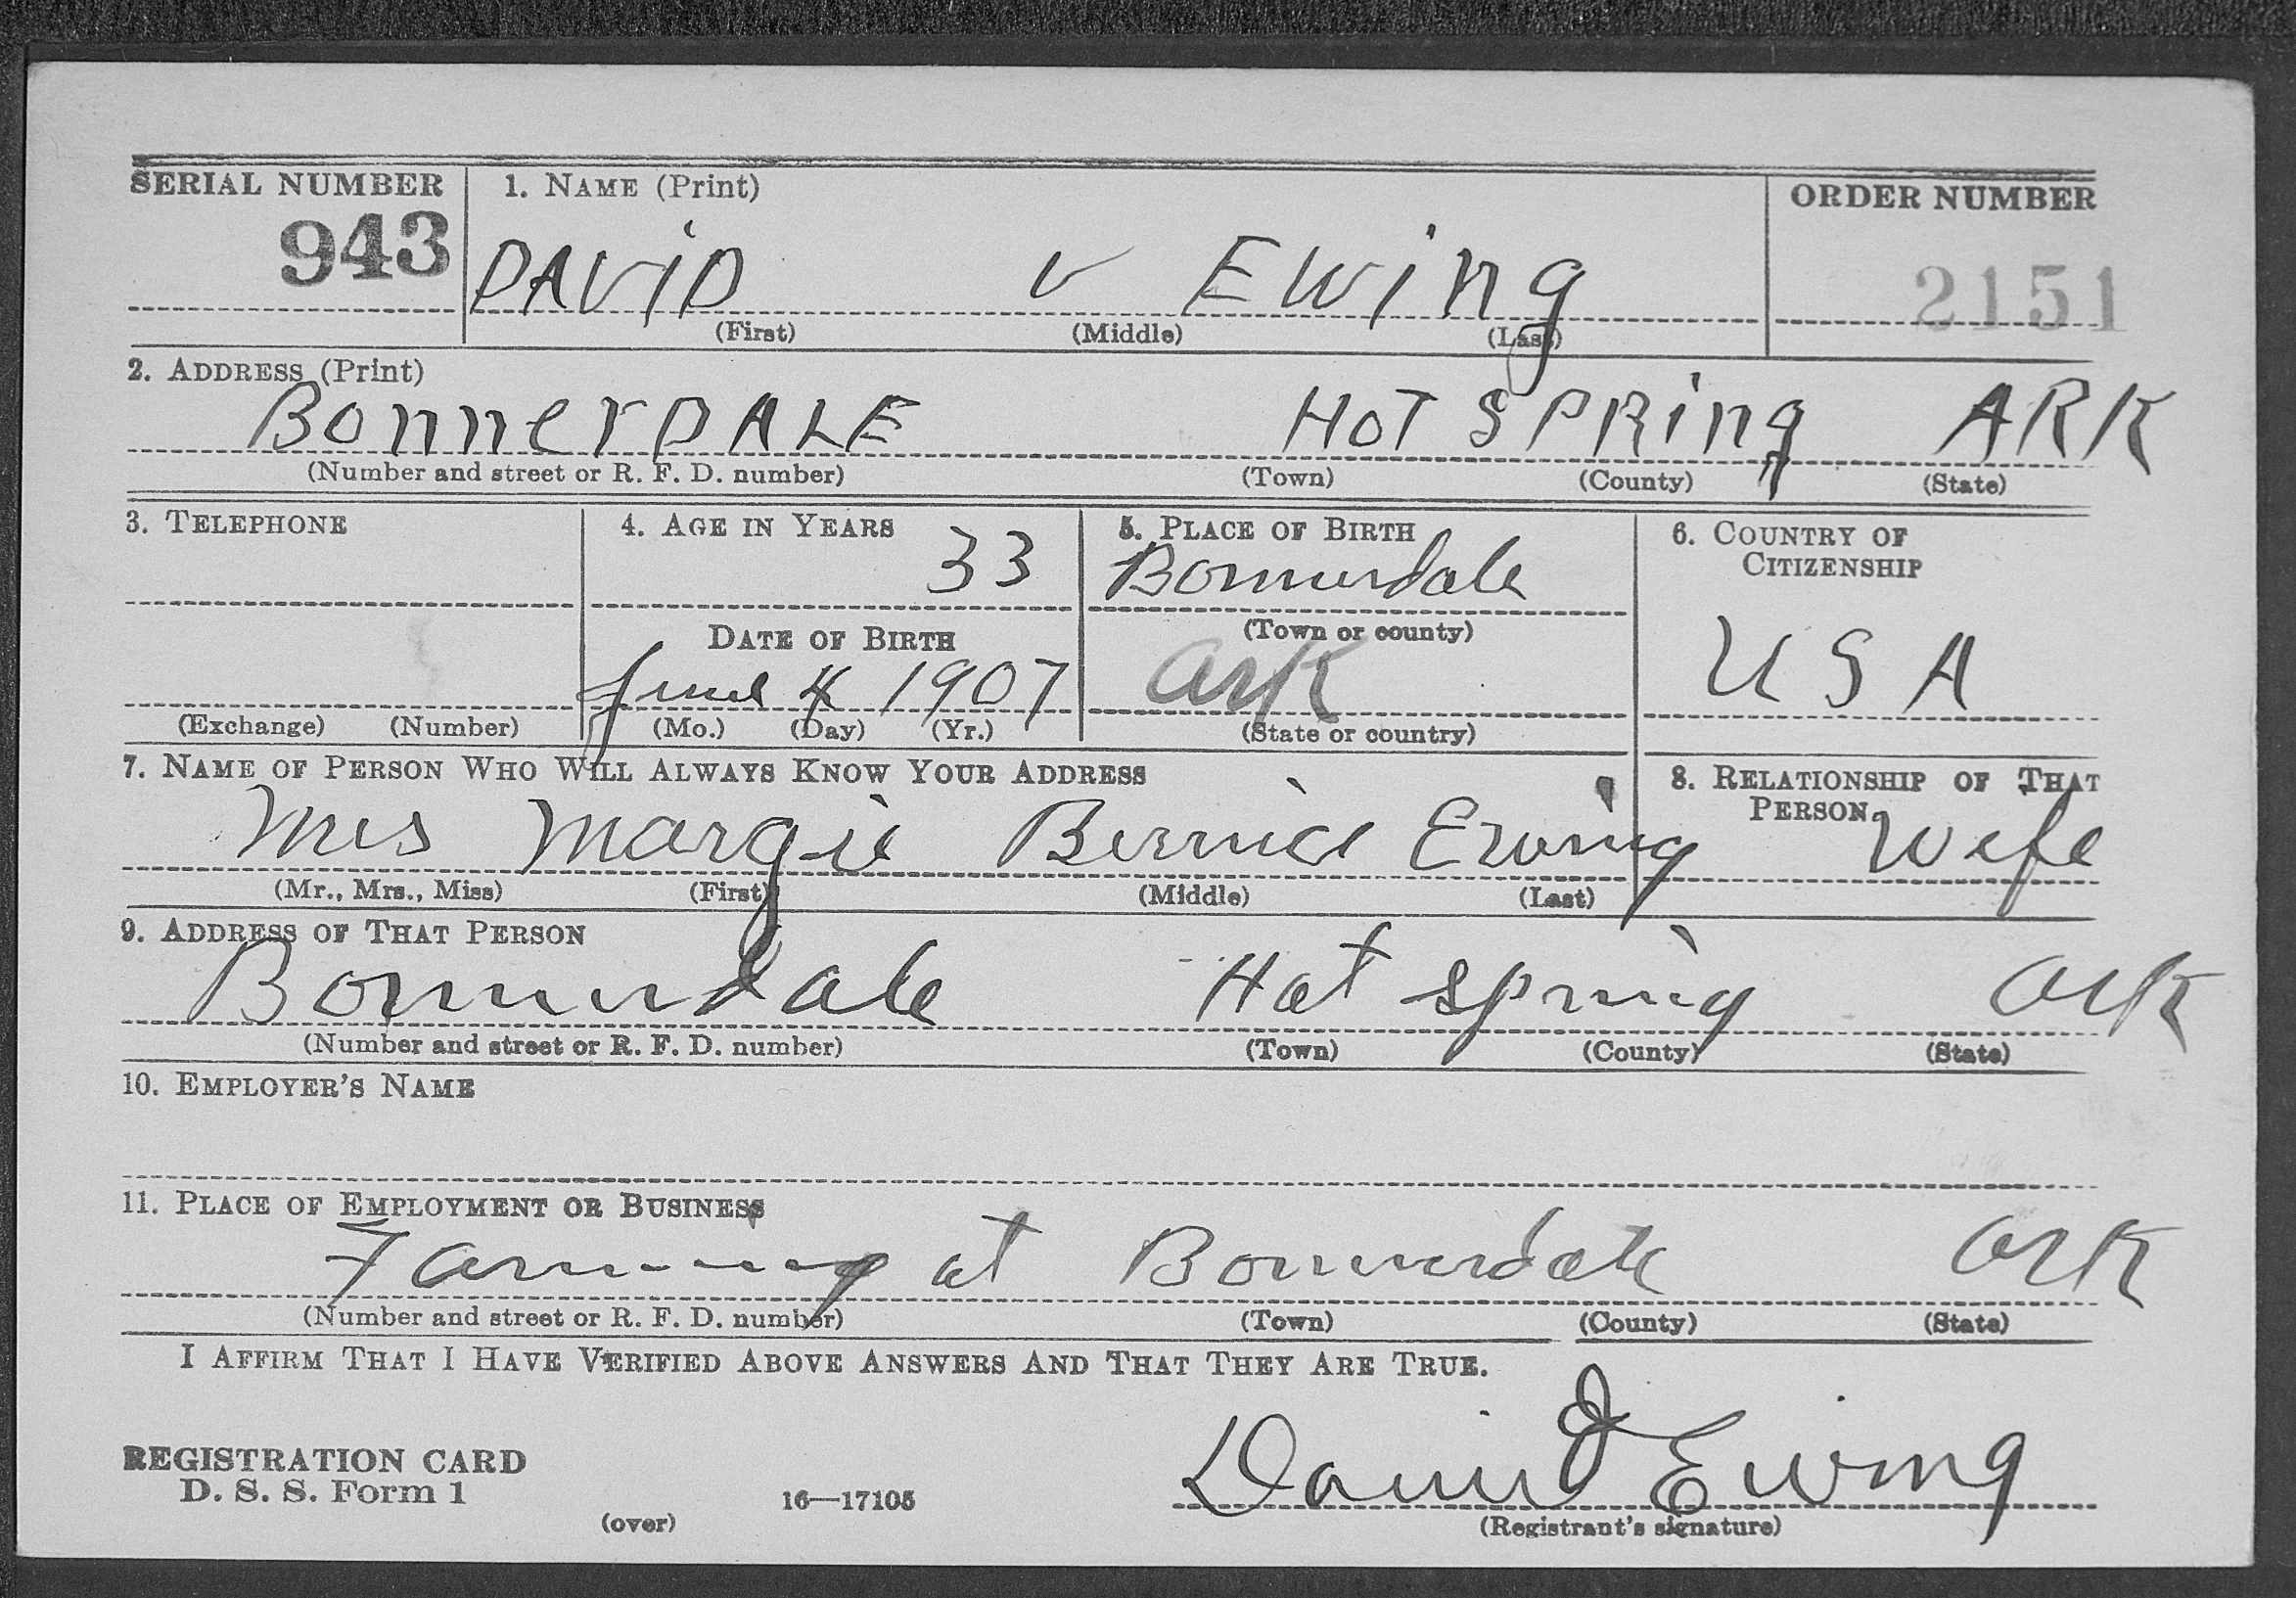 SERIAL NUMBER 1. NAME (Print) ORDER NUMBER
943 DAViD v EWing 2151
(First) (Middle) (Last)
2. ADDRESS (Print)
BonnerDALE HOT SPRing ARK
(Number and street or R. F. D. number) (Town) (County) (State)
3. TELEPHONE 4. AGE IN YEARS 5. PLACE OF BIRTH 6. COUNTRY OF
CITIZENSHIP
33 Bonnerdale
DATE OF BIRTH (Town or county)
June 4 1907 Ark USA
(Exchange) (Number) (Mo.) (Day) (Yr.) (State or country)
7. NAME OF PERSON WHO WILL ALWAYS KNOW YOUR ADDRESS 8. RELATIONSHIP OF THAT
PERSON
Mrs Margie Bernice Ewing Wife
(Mr., Mrs., Miss) (First) (Middle) (Last)
9. ADDRESS OF THAT PERSON
Bonnerdale Hot Spring Ark
(Number and street or R. F. D. number) (Town) (County) (State)
10. EMPLOYER'S NAME
11. PLACE OF EMPLOYMENT OR BUSINESS
Farming at Bonnerdale Ark
(Number and street or R. F. D. number) (Town) (County) (State)
I AFFIRM THAT I HAVE VERIFIED ABOVE ANSWERS AND THAT THEY ARE TRUE.
David Ewing
REGISTRATION CARD
D. S. S. Form 1 16—17105
(over) (Registrant's signature)